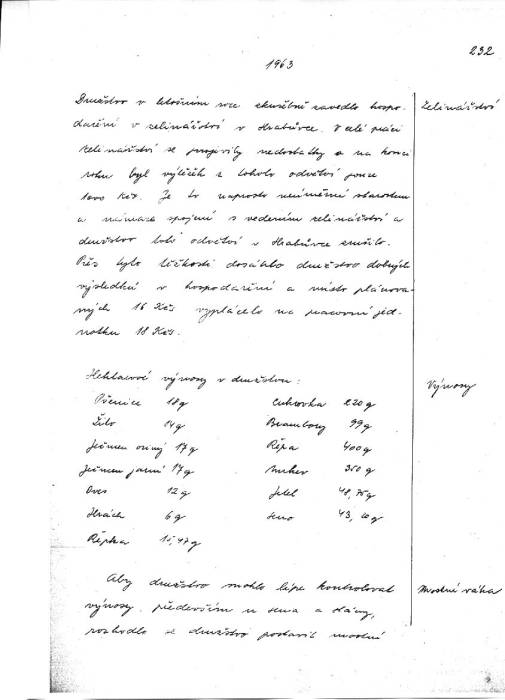 232
1963
Družstvo v letošním roce zkušebně zavedlo hospo-
Zelinářství
daření v zelinářství v Hrabůvce. V celé práci
zelinářství se projevily nedostatky a na konci
roku byl výtěžek z tohoto odvětví pouze
1000 Kčs. Je to naprosto neúměrné starostem
a námaze spojené s vedením zelinářství a
družstvo toto odvětví v Hrabůvce zrušilo.
Přes tyto těžkosti dosáhlo družstvo dobrých
výsledků v hospodaření a místo plánova-
ných 16 Kčs vyplácelo na pracovní jed-
notku 18 Kčs.
Hektarové výnosy v družstvu:
Výnosy
Pšenice 18q Cukrovka 220q
Žito 14q Brambory 99q
Ječmen ozimý 17q Řepa 400q
Ječmen jarní 17q 350q
Oves 12q Jetel 48,75q
Hrách 6q seno 43,20q
Řepka 15,47q
Aby družstvo mohlo lépe kontrolovat
Mostní váha
výnosy, především u sena a slámy,
rozhodlo se družstvo postavit mostní